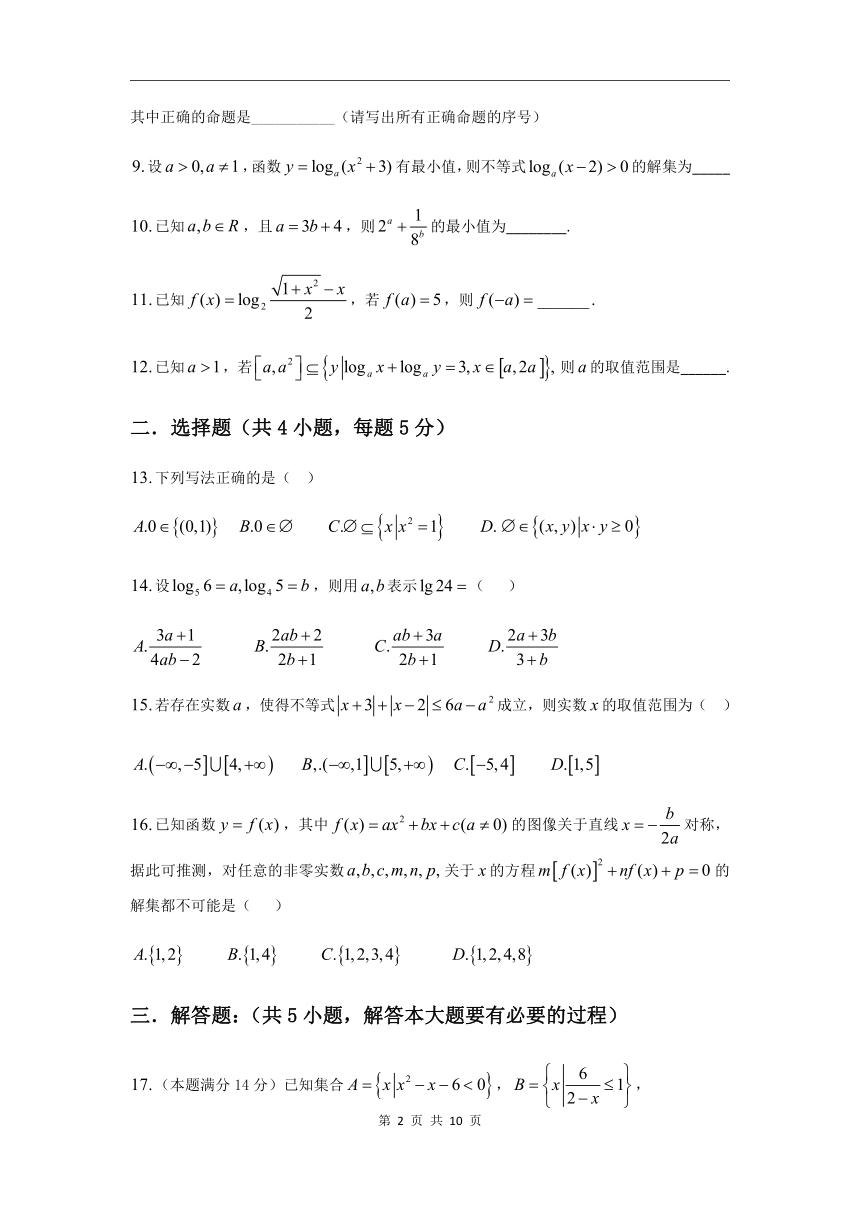 其中正确的命题是___________（请写出所有正确命题的序号）
9. 设 a > 0, a ≠ 1，函数 y = logₐ(x² + 3) 有最小值，则不等式 logₐ(x − 2) > 0 的解集为_____
10. 已知 a, b ∈ R，且 a = 3b + 4，则 2^a + 1/8^b 的最小值为________.
11. 已知 f(x) = log₂ (√(1 + x²) − x)/2，若 f(a) = 5，则 f(−a) = _______.
12. 已知 a > 1，若 [a, a²] ⊆ {y | logₐ x + logₐ y = 3, x ∈ [a, 2a]}, 则 a 的取值范围是______.
二．选择题（共 4 小题，每题 5 分）
13. 下列写法正确的是（ ）
A. 0 ∈ {(0,1)} B. 0 ∈ ∅ C. ∅ ⊆ {x | x² = 1} D. ∅ ∈ {(x, y) | x · y ≥ 0}
14. 设 log₅ 6 = a, log₄ 5 = b，则用 a, b 表示 lg 24 =（ ）
A. (3a + 1)/(4ab − 2) B. (2ab + 2)/(2b + 1) C. (ab + 3a)/(2b + 1) D. (2a + 3b)/(3 + b)
15. 若存在实数 a，使得不等式 |x + 3| + |x − 2| ≤ 6a − a² 成立，则实数 x 的取值范围为（ ）
A. (−∞, −5] ∪ [4, +∞) B,. (−∞, 1] ∪ [5, +∞) C. [−5, 4] D. [1, 5]
16. 已知函数 y = f(x)，其中 f(x) = ax² + bx + c(a ≠ 0) 的图像关于直线 x = −b/2a 对称，
据此可推测，对任意的非零实数 a, b, c, m, n, p, 关于 x 的方程 m[f(x)]² + nf(x) + p = 0 的
解集都不可能是（ ）
A. {1, 2} B. {1, 4} C. {1, 2, 3, 4} D. {1, 2, 4, 8}
三．解答题：（共 5 小题，解答本大题要有必要的过程）
17.（本题满分 14 分）已知集合 A = {x | x² − x − 6 < 0}，B = {x | 6/(2 − x) ≤ 1}，
第 2 页 共 10 页